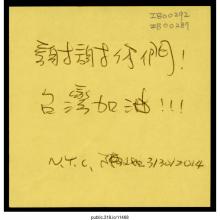 IB00292
IB00289
謝謝你們!
台灣加油!!!
N.Y.C. 3/30/2014
public.318.io/11468